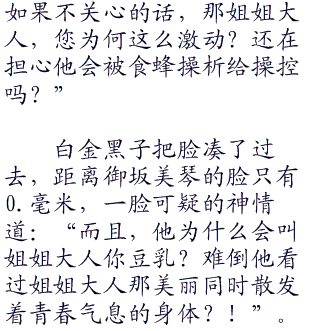 如果不关心的话，那姐姐大
人，您为何这么激动？还在
担心他会被食蜂操析给操控
吗？”
白金黑子把脸凑了过
去，距离御坂美琴的脸只有
0.毫米，一脸可疑的神情
道：“而且，他为什么会叫
姐姐大人你豆乳？难倒他看
过姐姐大人那美丽同时散发
着青春气息的身体？！”。